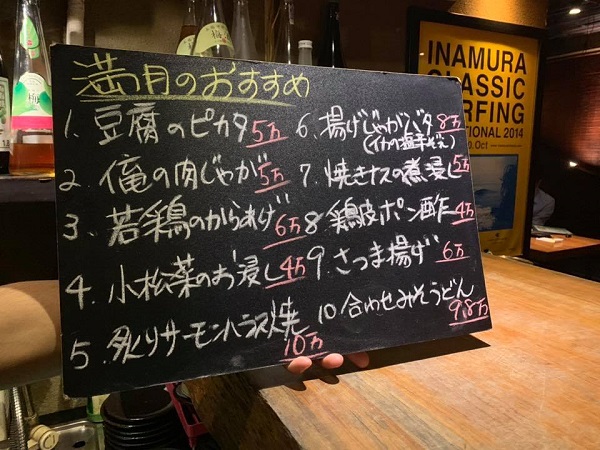 満月のおすすめ
1. 豆腐のピカタ 5万
2. 俺の肉じゃが 5万
3. 若鶏のからあげ 6万
4. 小松菜のお浸し 4万
5. 炙りサーモンハラス焼 10万
6. 揚げじゃがバタ 8万
(イカの塩辛ぞえ)
7. 焼きナスの煮浸し 5万
8 鶏皮ポン酢 4万
9. さつま揚げ 6万
10 合わせみそうどん 9.8万
INAMURA
CLASSIC
SURFING
2014
Oct